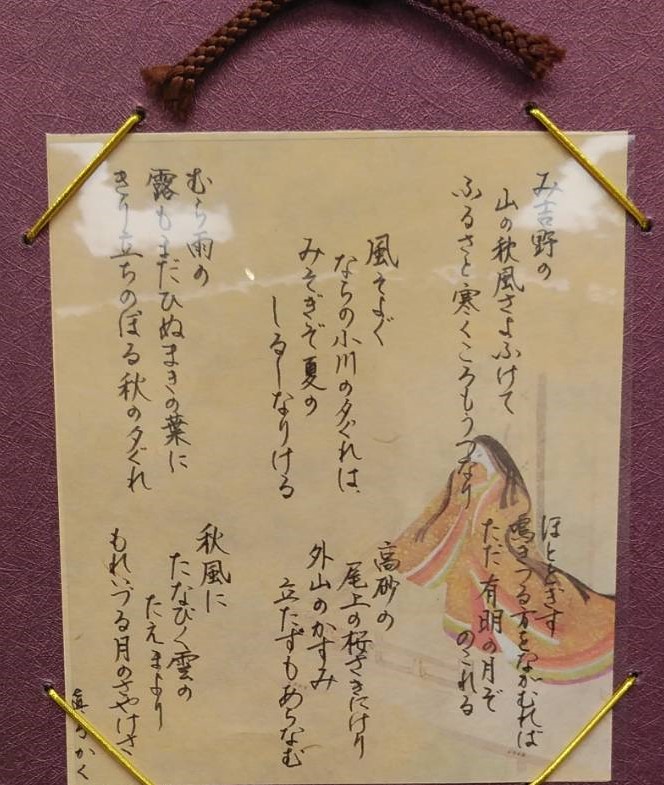 み吉野の
山の秋風さよふけて
ふるさと寒くころもうつなり
ほととぎす
鳴きつる方をながむれば
ただ有明の月ぞ
のこれる
風そよぐ
ならの小川の夕ぐれは
みそぎぞ夏の
しるしなりける
高砂の
尾上の桜さきにけり
外山のかすみ
立たずもあらなむ
むら雨の
露もまだひぬまきの葉に
きり立ちのぼる秋の夕ぐれ
秋風に
たなびく雲の
たえまより
もれいづる月のさやけさ
かく